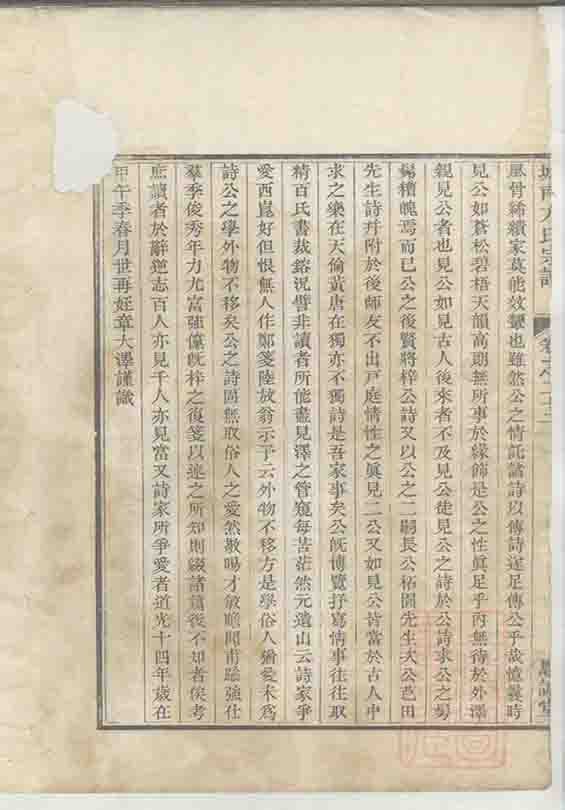 城南方氏宗譜 卷之二十三
風骨稀續家莫能效顰也雖然公之情託諸詩以傳詩遂足傳公乎哉憶曩時
見公如蒼松碧梧天韻高朗無所事於緣飾是公之性眞足乎內無待於外澤
親見公者也見公如見古人後來者不及見公徒見公之詩於公詩求公之髣
髴糟魄焉而已公之後賢將梓公詩又以公之二嗣長公柘園先生次公芑田
先生詩幷附於後師友不出戸庭情性之眞見二公又如見公皆當於古人中
求之樂在天倫黃唐在獨亦不獨詩是吾家事矣公旣博覽抒寫情事往往取
精百氏書裁鎔況譬非讀者所能盡見澤之管窺每苦茫然元遺山云詩家爭
愛西崑好但恨無人作鄭箋陸放翁示子云外物不移方是學俗人猶愛未爲
詩公之學外物不移矣公之詩固無取俗人之愛然敭暘才敏瞻聞甫踰強仕
羣季俊秀年力尤富強儻旣梓之復箋以迷之所知則綴諸簡後不知者俟考
庶讀者於辭逆志百人亦見千人亦見當又詩家所爭愛者道光十四年歲在
甲午季春月世再姪章大澤謹識